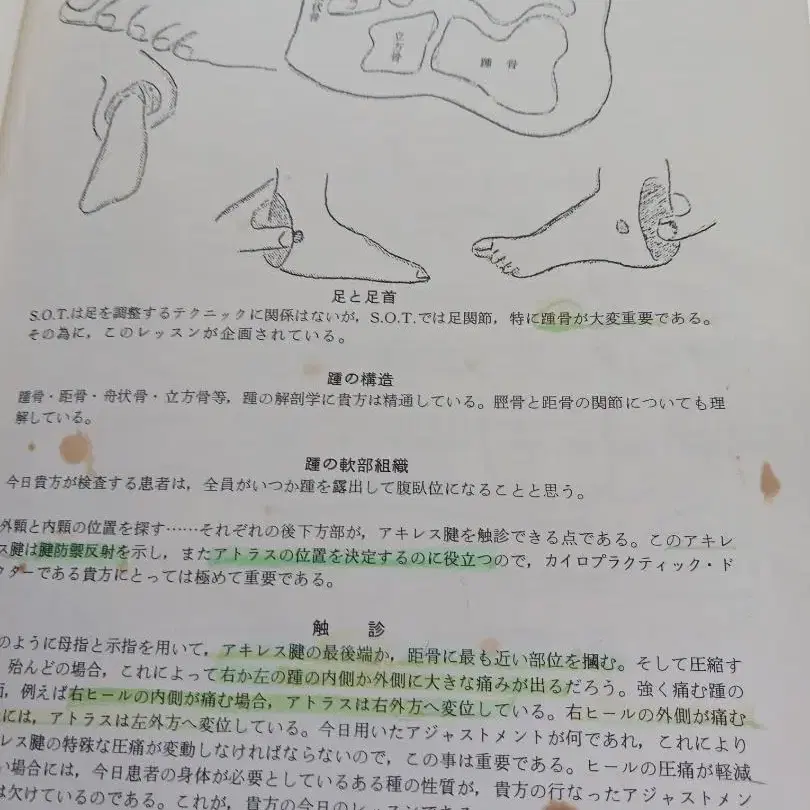 状骨
立方骨
踵骨
足と足首
S.O.T.は足を調整するテクニックに関係はないが，S.O.T.では足関節，特に踵骨が大変重要である。
その為に，このレッスンが企画されている。
踵の構造
踵骨・距骨・舟状骨・立方骨等，踵の解剖学に貴方は精通している。脛骨と距骨の関節についても理
解している。
踵の軟部組織
今日貴方が検査する患者は，全員がいつか踵を露出して腹臥位になることと思う。
外顆と内顆の位置を探す……それぞれの後下方部が，アキレス腱を触診できる点である。このアキレ
ス腱は腱防禦反射を示し，またアトラスの位置を決定するのに役立つので，カイロプラクティック・ド
クターである貴方にとっては極めて重要である。
触　診
のように母指と示指を用いて，アキレス腱の最後端か，距骨に最も近い部位を摑む。そして圧縮す
殆んどの場合，これによって右か左の踵の内側か外側に大きな痛みが出るだろう。強く痛む踵の
面，例えば右ヒールの内側が痛む場合，アトラスは右外方へ変位している。右ヒールの外側が痛む
には，アトラスは左外方へ変位している。今日用いたアジャストメントが何であれ，これにより
レス腱の特殊な圧痛が変動しなければならないので，この事は重要である。ヒールの圧痛が軽減
い場合には，今日患者の身体が必要としているある種の性質が，貴方の行なったアジャストメン
は欠けているのである。これが，貴方の今日のレッスンである